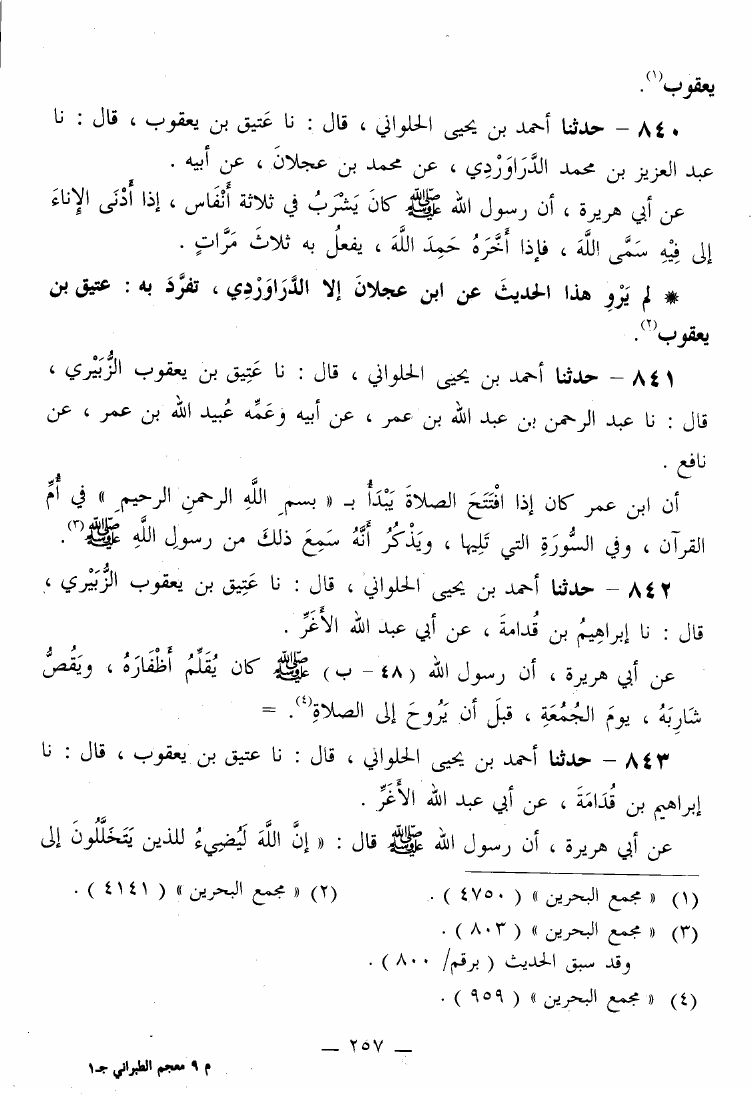 يعقوب(١).
٨٤٠ – حدثنا أحمد بن يحيى الحلواني ، قال : نا عَتيق بن يعقوب ، قال : نا
عبد العزيز بن محمد الدَّرَاوَرْدِي ، عن محمد بن عجلانَ ، عن أبيه .
عن أبي هريرة ، أن رسول الله ﷺ كانَ يَشْرَبُ في ثلاثة أَنْفَاس ، إذا أَدْنَى الإناءَ
إلى فِيْهِ سَمَّى اللَّهَ ، فإذا أَخَّرَهُ حَمِدَ اللَّهَ ، يفعلُ به ثلاثَ مَرَّاتٍ .
* لم يَرْوِ هذا الحديثَ عن ابن عجلانَ إلا الدَّرَاوَرْدِي ، تفرَّدَ به : عتيق بن
يعقوب(٢).
٨٤١ – حدثنا أحمد بن يحيى الحلواني ، قال : نا عَتِيق بن يعقوب الزُّبَيْري ،
قال : نا عبد الرحمن بن عبد الله بن عمر ، عن أبيه وعَمِّه عُبيد الله بن عمر ، عن
نافع .
أن ابن عمر كان إذا افْتَتَحَ الصلاةَ يَبْدَأُ بـ « بسم اللَّهِ الرحمنِ الرحيم » في أُمِّ
القرآن ، وفي السُّورَةِ التي تَلِيها ، ويَذْكُرُ أَنَّهُ سَمِعَ ذلكَ من رسولِ اللَّهِ ﷺ(٣).
٨٤٢ – حدثنا أحمد بن يحيى الحلواني ، قال : نا عَتِيق بن يعقوب الزُّبَيْري ،
قال : نا إبراهِيمُ بن قُدامةَ ، عن أبي عبد الله الأَغَرِّ .
عن أبي هريرة ، أن رسول الله ( ٤٨ – ب ) ﷺ كان يُقَلِّمُ أَظْفَارَهُ ، ويَقُصُّ
شَارِبَهُ ، يومَ الجُمُعَةِ ، قبلَ أن يَرُوحَ إلى الصلاةِ(٤). =
٨٤٣ – حدثنا أحمد بن يحيى الحلواني ، قال : نا عتيق بن يعقوب ، قال : نا
إبراهيم بن قُدَامَةَ ، عن أبي عبد الله الأَغَرِّ .
عن أبي هريرة ، أن رسول الله ﷺ قال : « إنَّ اللَّهَ لَيُضِيءُ للذين يَتَخَلَّلُونَ إلى
(١) « مجمع البحرين » ( ٤٧٥٠ ) . (٢) « مجمع البحرين » ( ٤١٤١ ) .
(٣) « مجمع البحرين » ( ٨٠٣ ) .
وقد سبق الحديث ( برقم/ ٨٠٠ ) .
(٤) « مجمع البحرين » ( ٩٥٩ ) .
— ٢٥٧ —
م ٩ معجم الطبراني جـ١